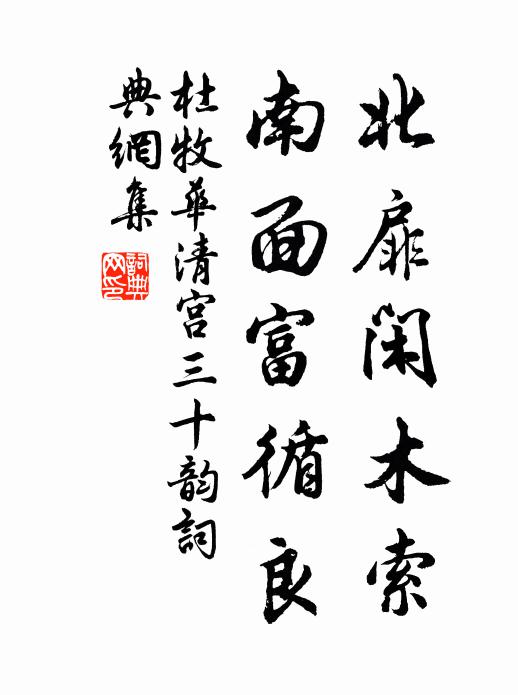 北扉閑木索
南面富循良
杜牧華清宮三十韵詞
典網集
詞典
网印